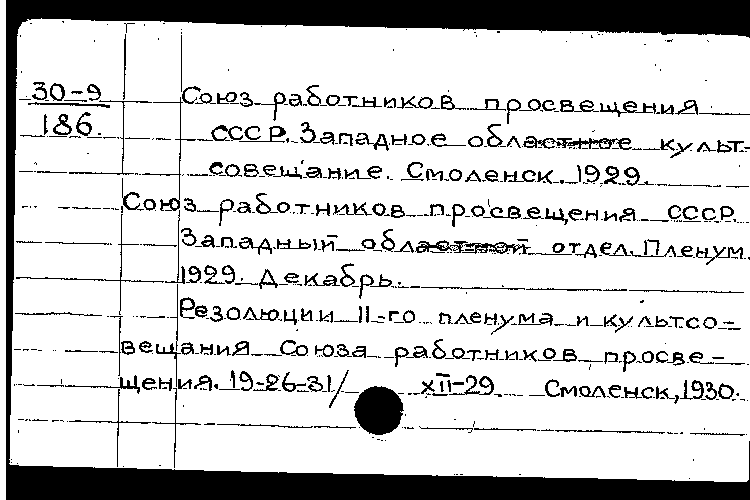 30-9
186.
Союз работников просвещения
СССР. Западное областное культ-
совещание. Смоленск. 1929.
Союз работников просвещения СССР.
Западный областной отдел. Пленум.
1929. Декабрь.
Резолюции II-го пленума и культсо-
вещания Союза работников просве-
щения. 19-26-31/XII-29. Смоленск, 1930.